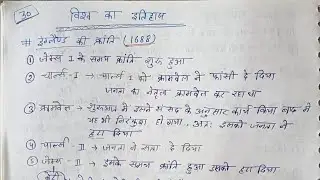 30
विश्व का इतिहास
# इंग्लैण्ड की क्रांति (1688)
① जेम्स I के समय क्रांति शुरू हुआ
② चार्ल्स-I → चार्ल्स I को क्रामवेल ने फाँसी दे दिया
जनता का नेतृत्व क्रामवेल कर रहा था
③ क्रामवेल → शुरुआत में इसने संसद के अनुसार कार्य किया बाद में
यह भी निरंकुश हो गया, अतः इसको जनता ने
हटा दिया
④ चार्ल्स-II → जनता ने सत्ता दे दिया
⑤ जेम्स-II → इसके समय क्रांति हुआ उसको हटा दिया